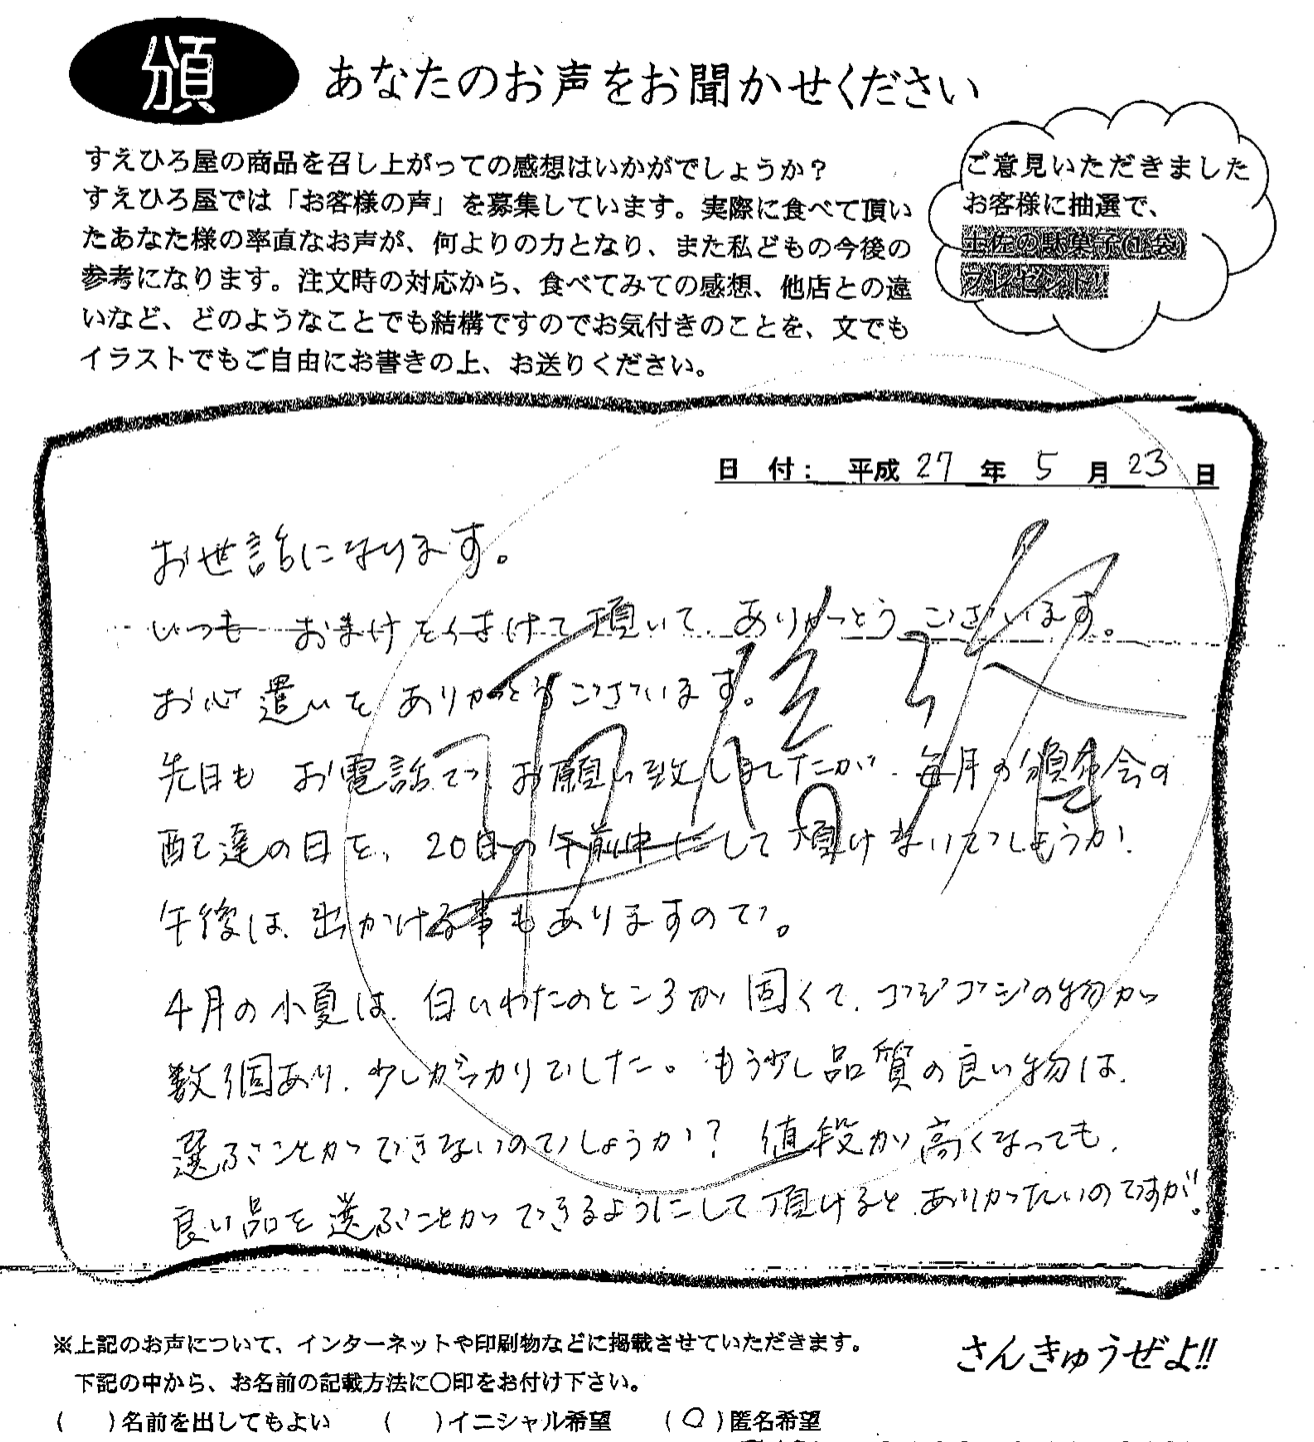 頒
あなたのお声をお聞かせください
すえひろ屋の商品を召し上がっての感想はいかがでしょうか？
すえひろ屋では「お客様の声」を募集しています。実際に食べて頂い
たあなた様の率直なお声が、何よりの力となり、また私どもの今後の
参考になります。注文時の対応から、食べてみての感想、他店との違
いなど、どのようなことでも結構ですのでお気付きのことを、文でも
イラストでもご自由にお書きの上、お送りください。
ご意見いただきました
お客様に抽選で、
土佐の駄菓子(1袋)
プレゼント!!
日 付： 平成 27 年 5 月 23 日
お世話になります。
いつも おまけをつけて頂いて、ありがとうございます。
お心遣いを ありがとうございます。
先日も お電話で、お願い致しましたが、毎月の頒布会の
配達の日を、20日の午前中にして頂けないでしょうか!
午後は、出かける事もありますので。
4月の小夏は、白いわたのところが固くて、コジコジの物が
数個あり、少しがっかりでした。もう少し品質の良い物は、
選ぶことができないのでしょうか? 値段が高くなっても、
良い品を選ぶことができるようにして頂けるとありがたいのですが!
※上記のお声について、インターネットや印刷物などに掲載させていただきます。
下記の中から、お名前の記載方法に○印をお付け下さい。
(　)名前を出してもよい　(　)イニシャル希望　(○)匿名希望
さんきゅうぜよ!!